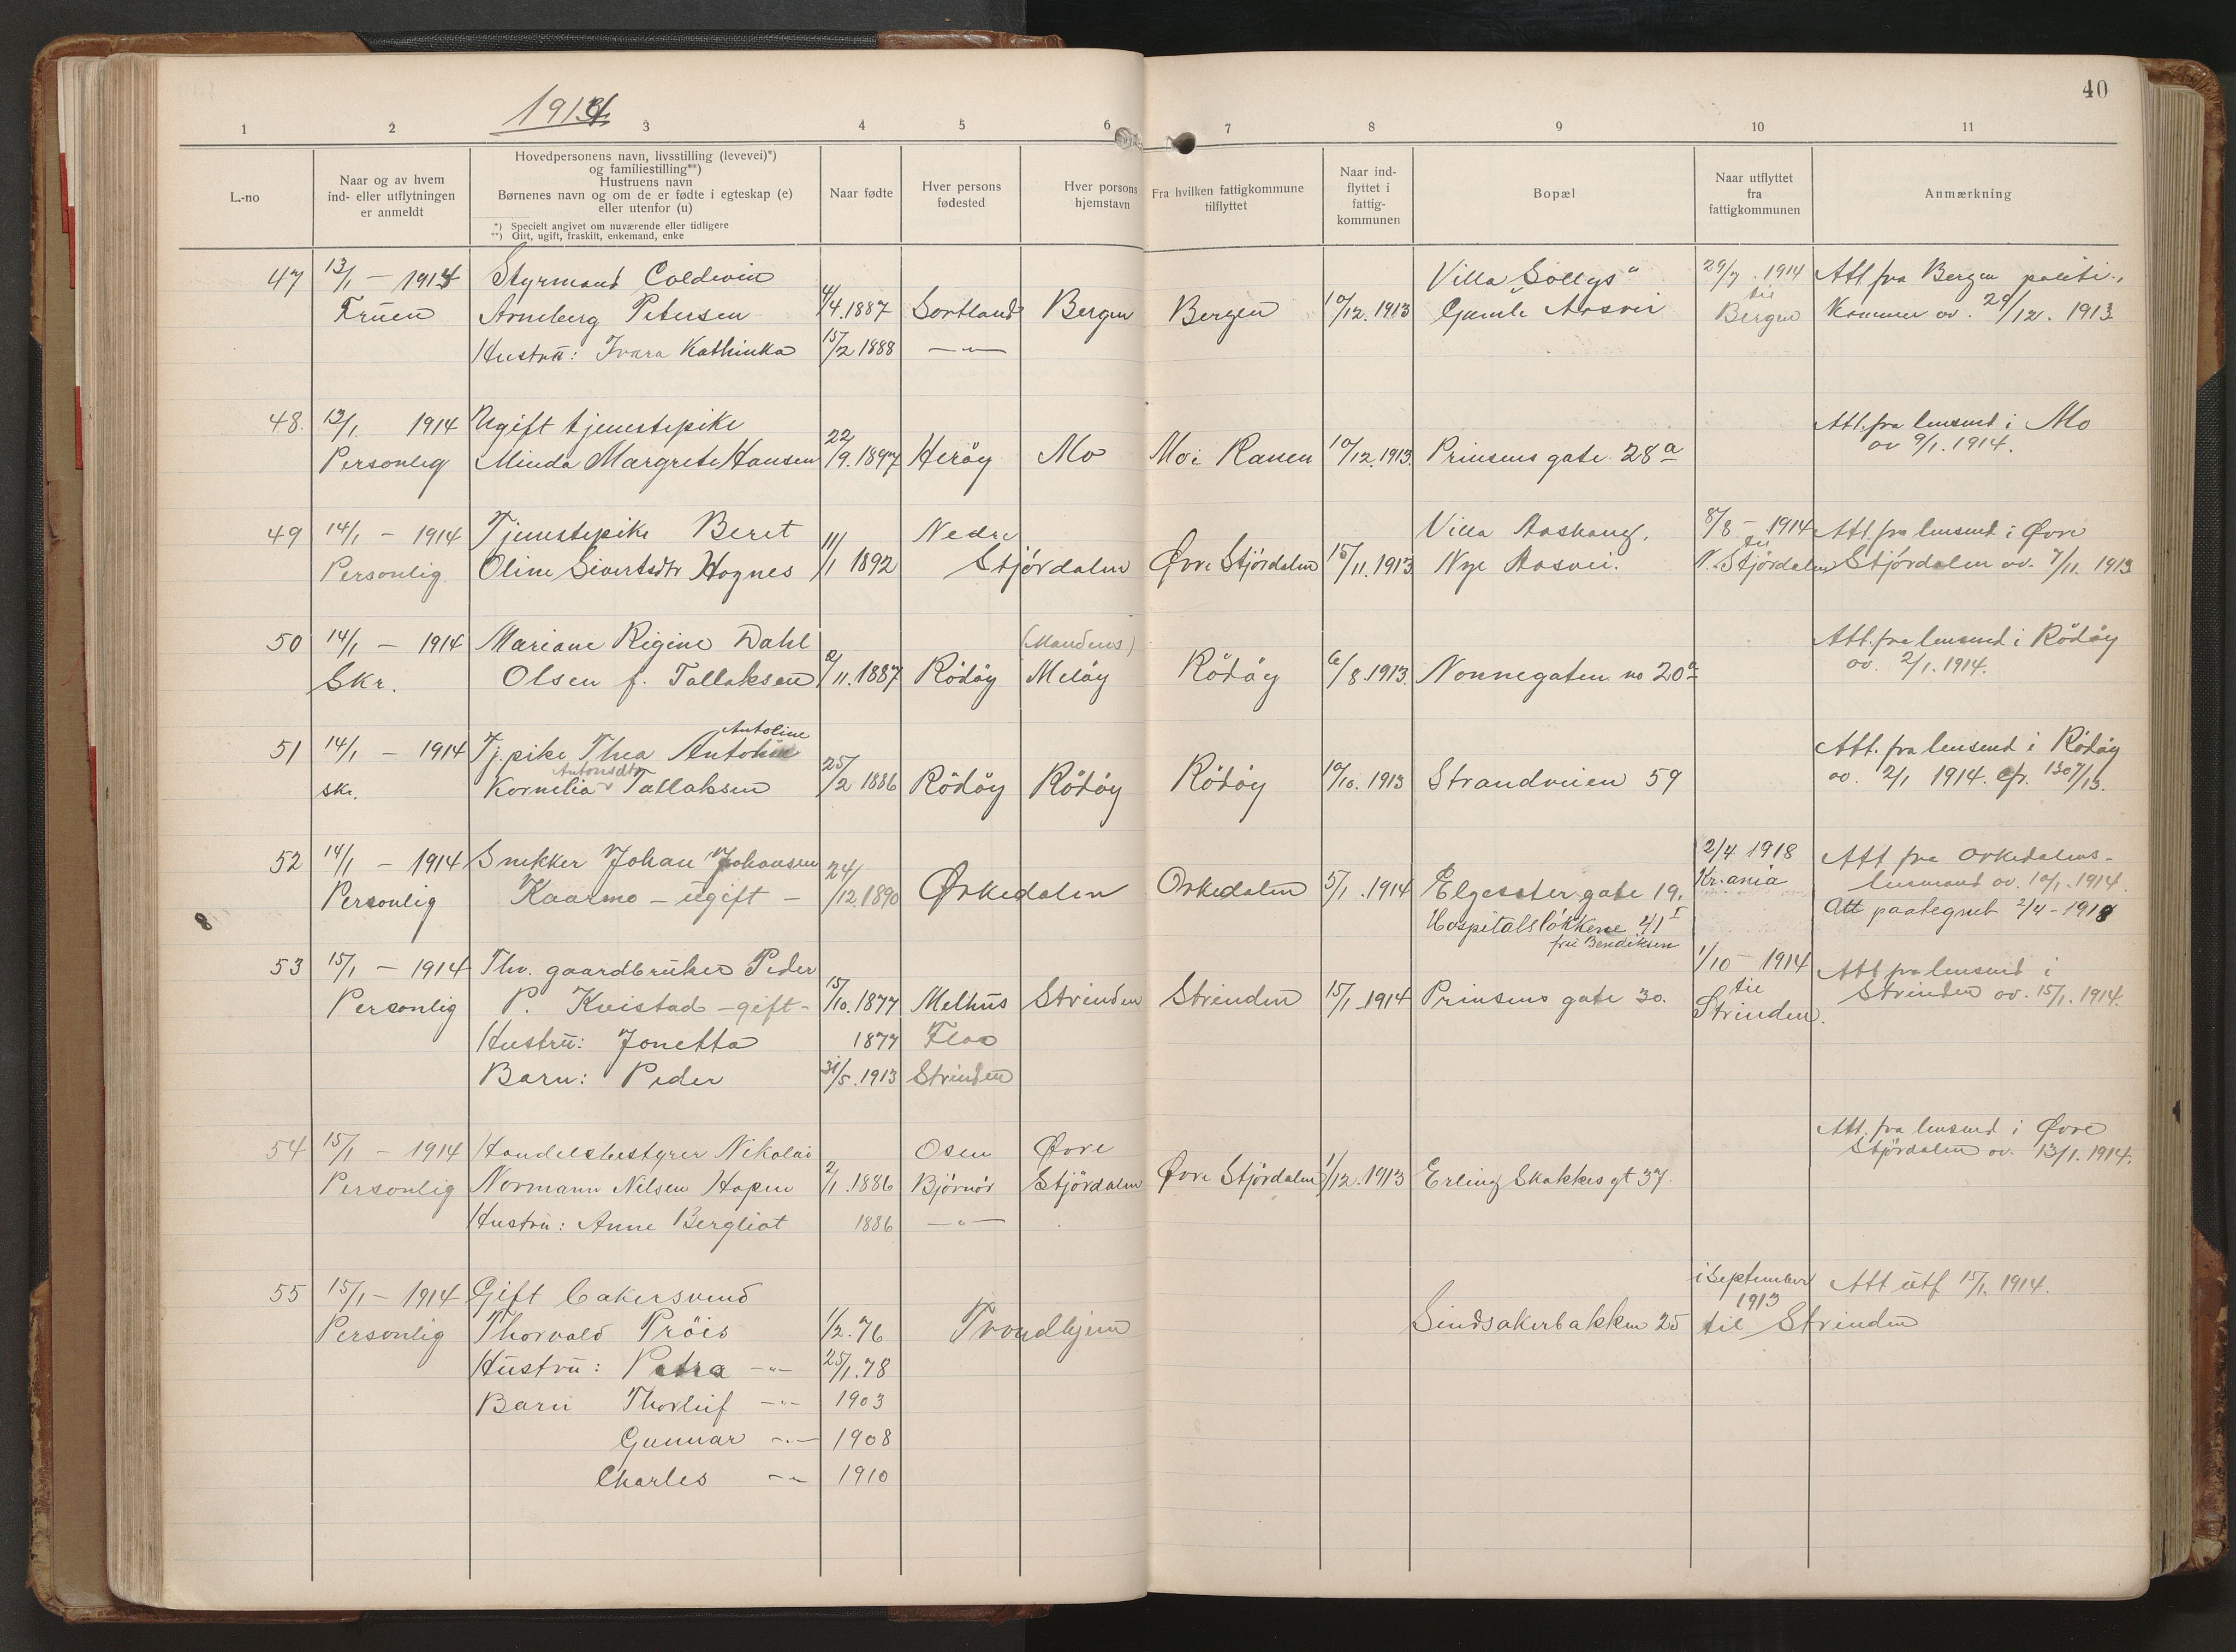 40
1914
1 2 3 4 5 6 7 8 9 10 11
L.-no
Naar og av hvem
ind- eller utflytningen
er anmeldt
Hovedpersonens navn, livsstilling (levevei)*)
og familiestilling**)
Hustruens navn
Børnenes navn og om de er fødte i egteskap (e)
eller utenfor (u)
*) Specielt angivet om nuværende eller tidligere
**) Gift, ugift, fraskilt, enkemand, enke
Naar fødte
Hver persons
fødested
Hver persons
hjemstavn
Fra hvilken fattigkommune
tilflyttet
Naar ind-
flyttet i
fattig-
kommunen
Bopæl
Naar utflyttet
fra
fattigkommunen
Anmærkning
47 13/1 – 1914 Styrmand Coldevin Villa "Solbgs" 29/7. 1914 Att fra Bergen politi-
Fruen Arneberg Petersen 4/4. 1887 Sortland Bergen Bergen 10/12. 1913 Gamle Aasvei til Bergen Kammer av. 29/12. 1913
Hustru: Ivara Kathinka 15/2 1888 —"—
48. 13/1. 1914 Ugift tjenestepike Att. fra lensmd i Mo
Personlig Minda Margrete Hansen 22/9. 1897 Herøy Mo Mo i Ranen 10/12. 1913. Prinsens gate 28a av 9/1. 1914.
49 14/1 – 1914 Tjenestepike Beret Nedre Villa Aashaug, 8/8 – 1914 Att. fra lensmd i Øvre
Personlig. Oline Sivertsdtr Hognes 11/1 1892 Stjørdalen Øvre Stjørdalen 15/11. 1913 Nye Aasvei. til N. Stjørdalen Stjørdalen av. 7/11. 1913
50 14/1 – 1914 Mariane Regine Dahl (Mandens) Att. fra lensmd i Rødøy
Skr. Olsen f. Tallaksen 2/11. 1887 Rødøy Meløy Rødøy 6/8. 1913. Nonnegaten no 20a av. 2/1. 1914.
Antoline
51 14/1 – 1914 Tj. pike Thea Antonie Att. fra lensmd i Rødøy
Antonsdtr
skr. Kornelia Tallaksen 25/2 1886 Rødøy Rødøy Rødøy 10/10. 1913 Strandveien 59 av. 2/1 1914. cfr. 1307/13.
52 14/1 – 1914 Snekker Johan Johansen 2/4 1918 Att fra Orkedalens-
Personlig Kaarmo – ugift – 24/12. 1890 Ørkedalen Orkedalen 5/1. 1914 Elgeseter gate 19. Kr.ania lensmand av. 10/1. 1914.
8 Hospitalsløkkene 41 I Att paategnet 2/4 – 1918
fru Bendiksen
53 15/1 – 1914 Thv. gaardbruker Peder 1/10 – 1914 Att fra lensmd i
Personlig P. Kvistad – gift – 15/10. 1877 Melhus Strinden Strinden 15/1. 1914 Prinsens gate 30. til Strinden. Strinden av. 15/1. 1914.
Hustru: Jonetta 1877 Flaa
Barn: Peder 31/5. 1913 Strinden
54 15/1 – 1914 Handelsbestyrer Nikolai Osen Øvre Att. fra lensmd i Øvre
Personlig Normann Nilsen Hopen 2/1. 1886 Bjørnør Stjørdalen Øvre Stjørdalen 1/12. 1913 Erling Skakkes gt 37. Stjørdalen av. 13/1. 1914.
Hustru: Anne Bergliot 1886 —"—
55 15/1 – 1914 Gift bakersvend i September Att utf 15/1. 1914.
Personlig Thorvald Prøis 1/2. 76 Trondhjem Sindsakerbakken 25 1913 til Strinden
Hustru: Petra —"— 25/1. 78
Barn Thorleif —"— 1903
Gunnar —"— 1908
Charles —"— 1910